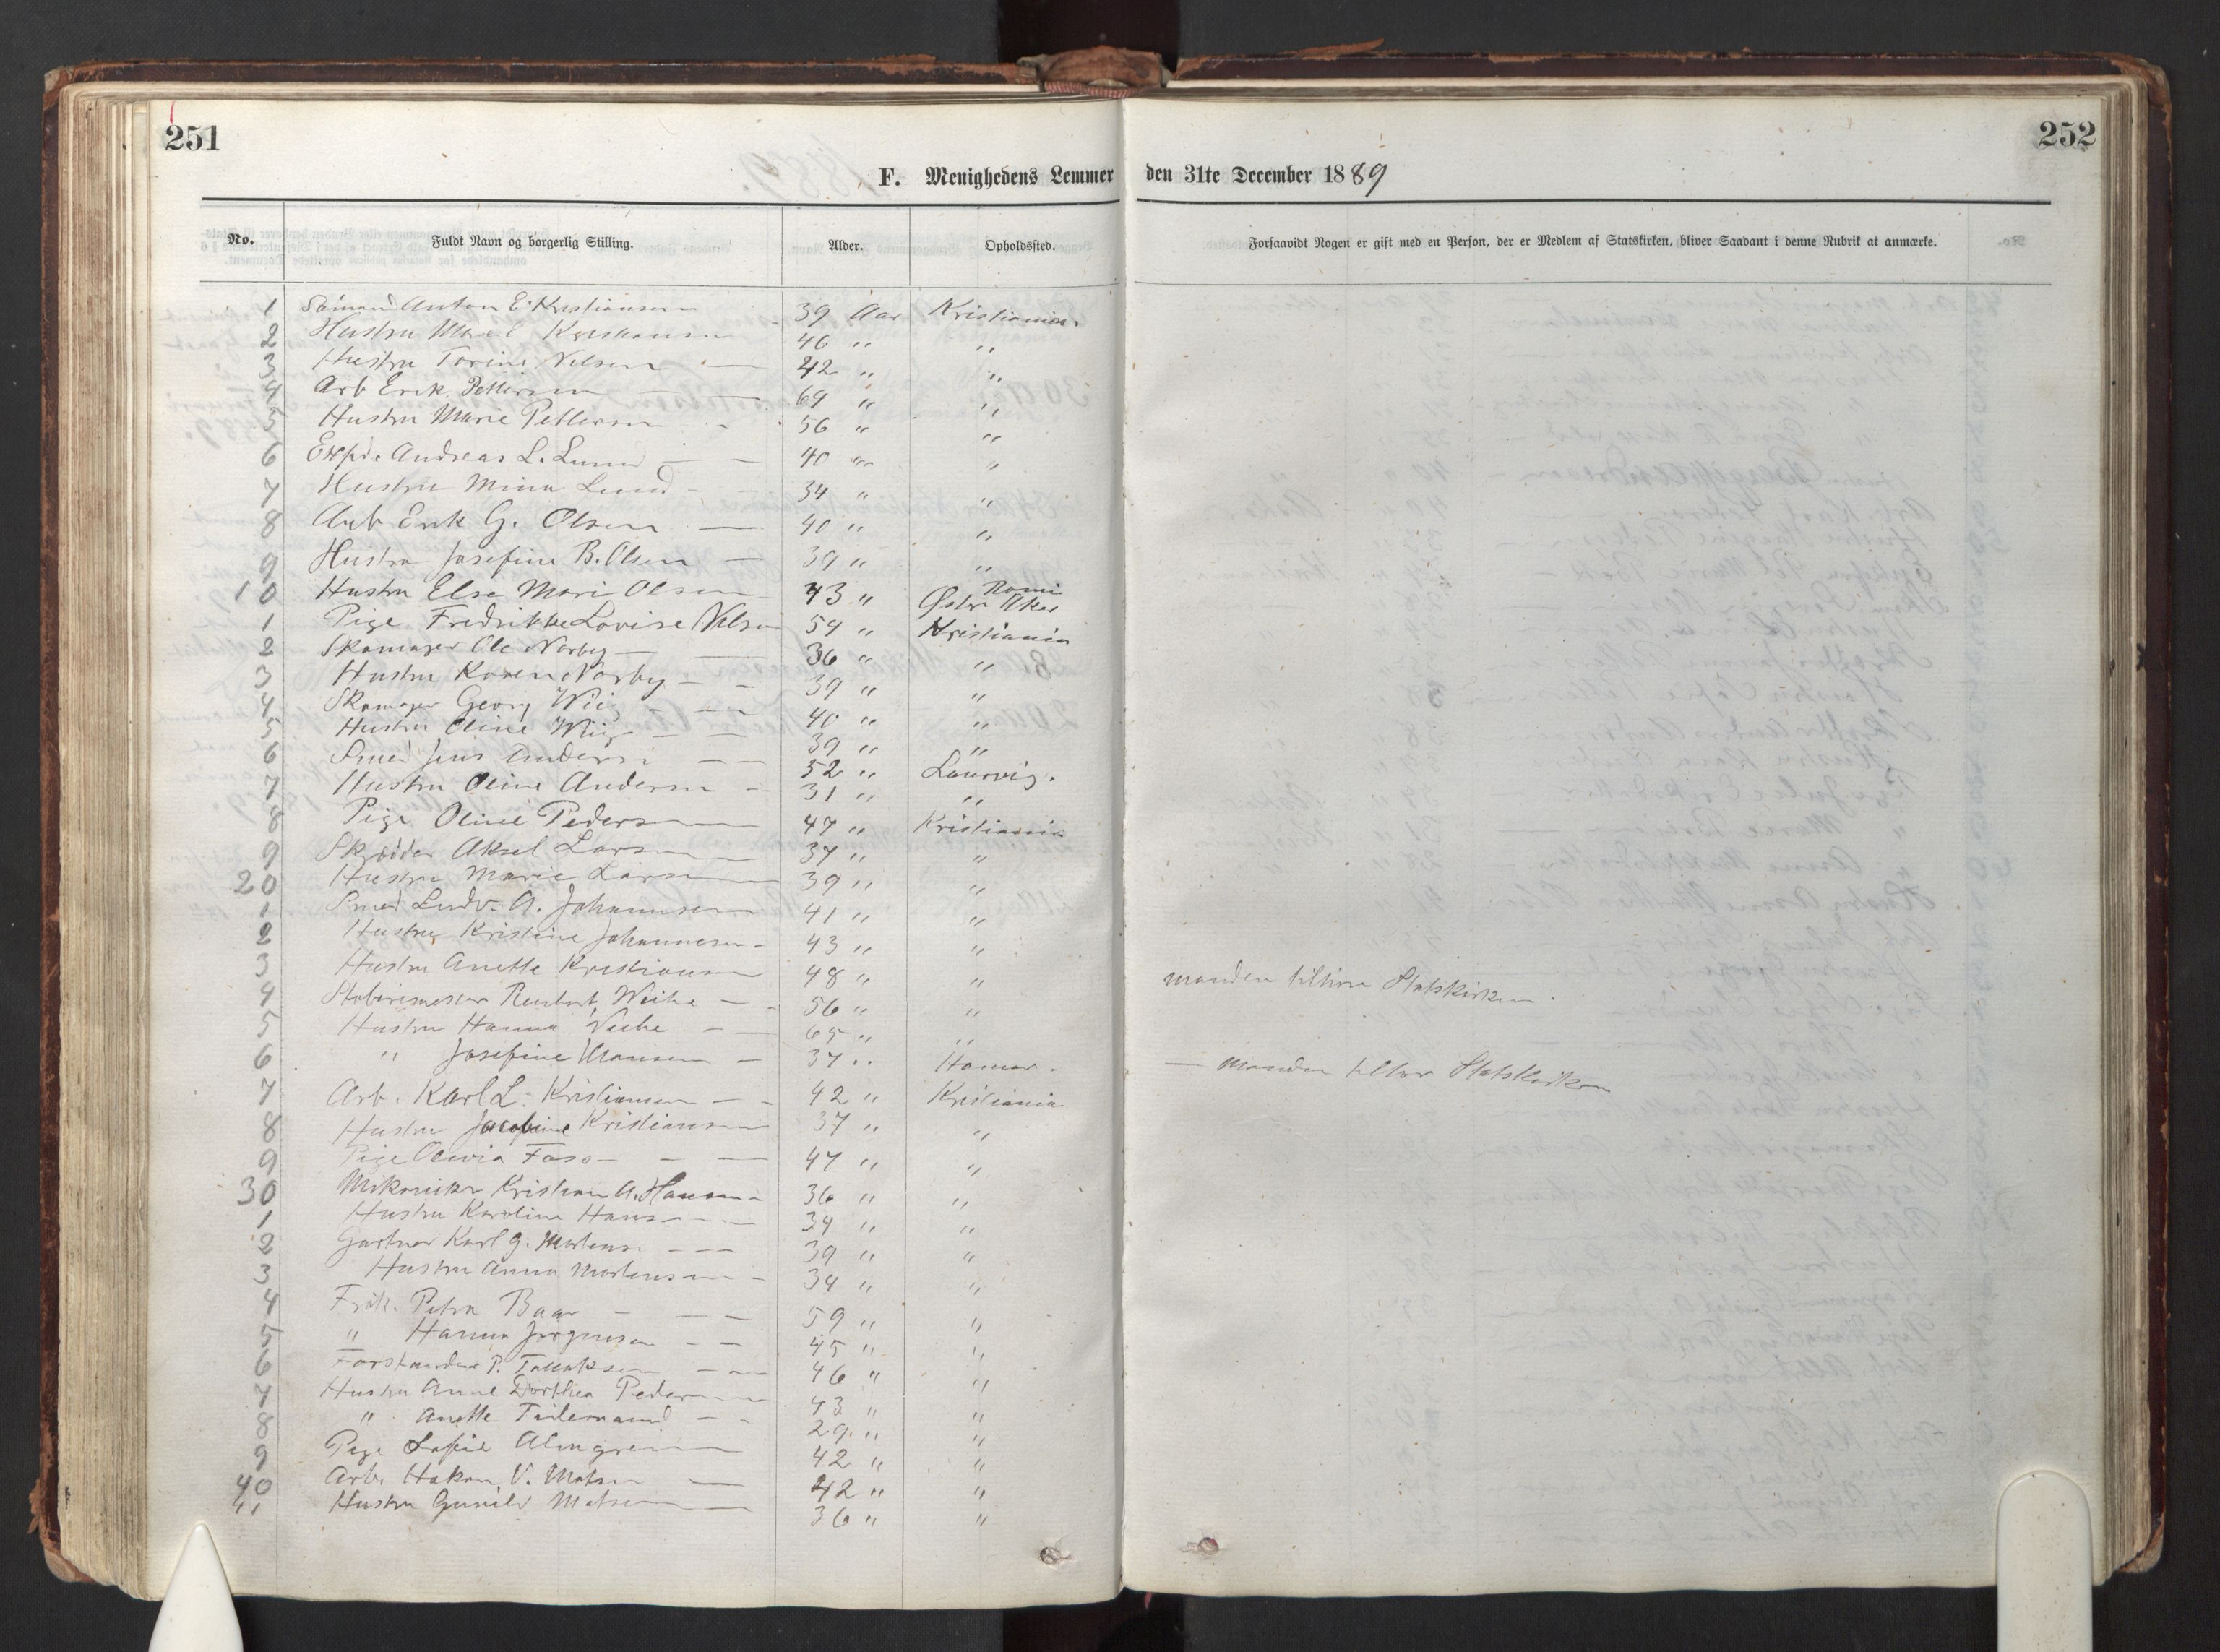 251
252
F. Menighedens Lemmer den 31te December 1889
No. Fuldt Navn og borgerlig Stilling. Alder. Opholdssted. Forsaavidt Nogen er gift med en Person, der er Medlem af Statskirken, bliver Saadant i denne Rubrik at anmærke.
1 Sömand Anton E. Kristiansen 39 Aar Kristiania.
2 Hustru Kristiansen 46 " "
3 Hustru Torine Nilsen — 42 " "
4 Arb Erik Pettersen — 64 " "
5 Hustru Marie Pettersen - 56 " "
6 Andreas L. Lund — — 40 " "
7 Hustru Mina Lund - - 34 " "
8 Arb Erik G. Olsen — 40 " "
9 Hustru Josefine B. Olsen — 39 " "
10 Hustru Else Mari Olsen 43 " Østr Aker
1 Pige Fredrikke Lovise Nilsen 54 " Kristiania
2 Skomager Ole Norby — — 36 " "
3 Hustru Karen Norby — - 39 " "
4 Skomager Georg Wiig - — 40 " "
5 Hustru Oline Wiig — — 39 " "
6 Smed Jens Andersn — — 52 " Laurvig.
7 Hustru Oline Andersen - 31 " "
8 Pige Oline Pedersen — 47 " Kristiania
9 Skrædder Aksel Larsen — 37 " "
20 Hustru Marie Larsen — 39 " "
1 Smed Ludv. A. Johannesen — 41 " "
2 Hustru Kristine Johannesen - 43 " "
3 Hustru Anette Kristiansen 48 " " manden tilhører Statskirken.
4 Weihe — - 56 " "
5 Hustru Hanna Weihe — — 65 " "
6 " Josefine Hansen — 37 " Hamar. — manden tilhør Statskirken
7 Arb. Karl L. Kristiansen — - 42 " Kristiania
8 Hustru Jacobine Kristiansen 37 " "
9 Pige Olivia Foss — - — 47 " "
30 Mikaniker Kristian A. Hansen - 36 " "
1 Hustru Karoline Hansen - — 34 " "
2 Gartner Karl G. Mortens. - — — 39 " "
3 Hustru Anna Mortensen — - 34 " "
4 Frøk. Petra Baar - — — 59 " "
5 " Hanna Jörgensen — — 45 " "
6 Forstander P. Tallaksen — — 46 " "
7 Hustru Anne Dorthea Pedersen 43 " "
8 " Anette Tidemand — - 29. " "
9 Pige Sofie Almgren — 42 " "
40 Arb. Hakon V. Matsen — 42 " "
41 Hustru Gunild Matsen — 36 " "